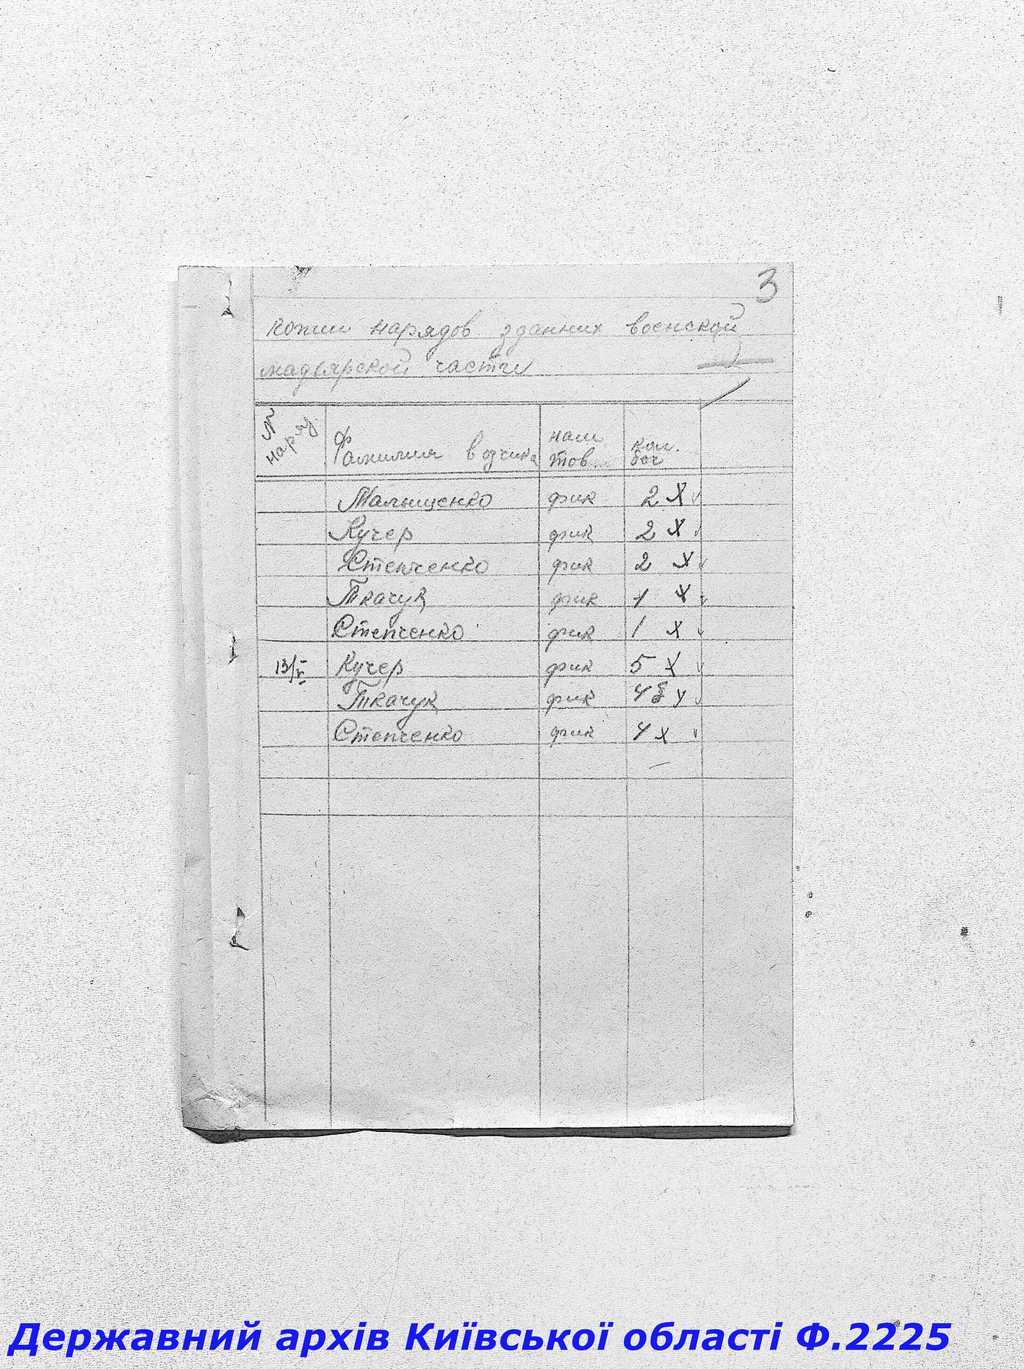 3
копии нарядов зданних военской
мадьярской части
№ наряд. Фамилия возчика наим тов. кол. боч
Малышенко фик 2 X
Кучер фик 2 X
Степченко фик 2 X
Ткачук фик 1 X
Степченко фик 1 X
13/V Кучер фик 5 X
Ткачук фик 4
Степченко фик 4 X
Державний архів Київської області Ф.2225